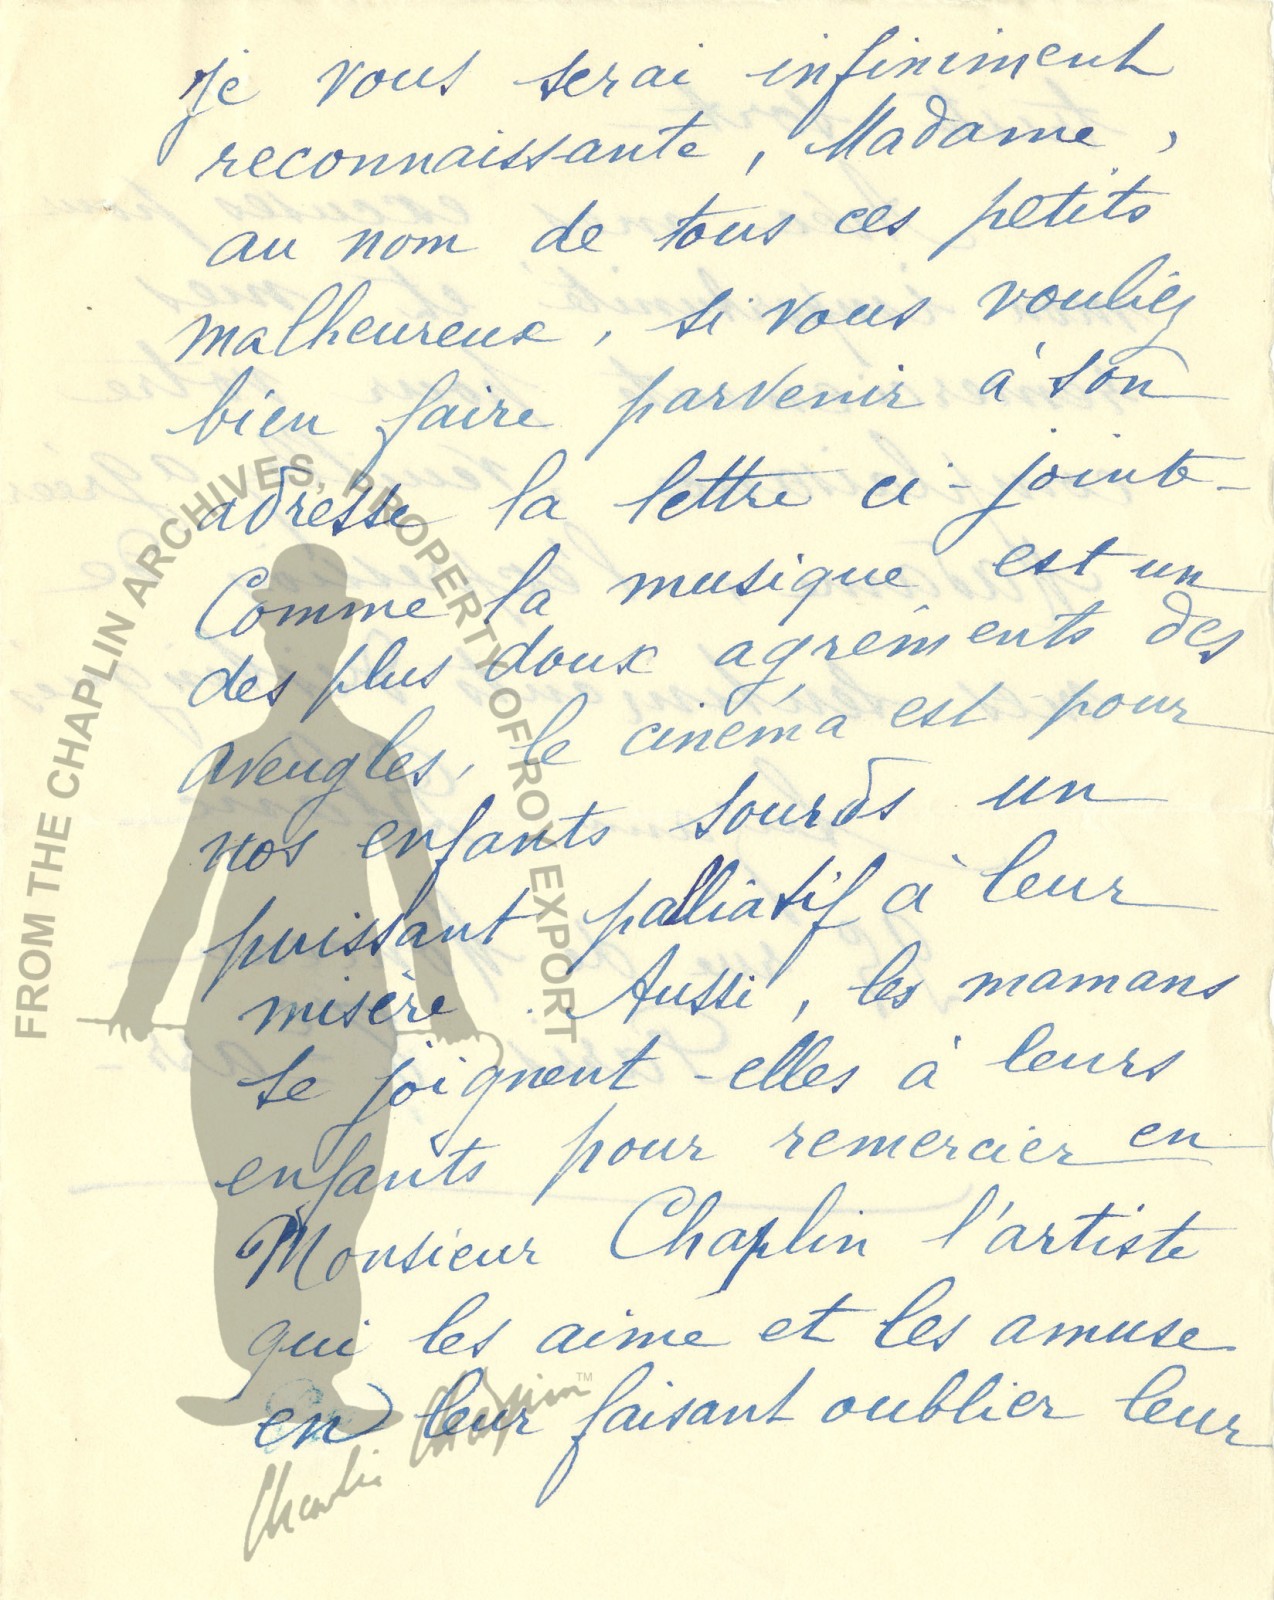 Je vous serai infiniment
reconnaissante, Madame,
au nom de tous ces petits
malheureux, si vous vouliez
bien faire parvenir à son
adresse la lettre ci-jointe-
Comme la musique est un
des plus doux agréments des
aveugles, le cinéma est pour
nos enfants sourds un
puissant palliatif à leur
misère. Aussi, les mamans
se joignent-elles à leurs
enfants pour remercier en
Monsieur Chaplin l'artiste
qui les aime et les amuse
en leur faisant oublier leur
FROM THE CHAPLIN ARCHIVES, PROPERTY OF ROY EXPORT
Charlie Chaplin™